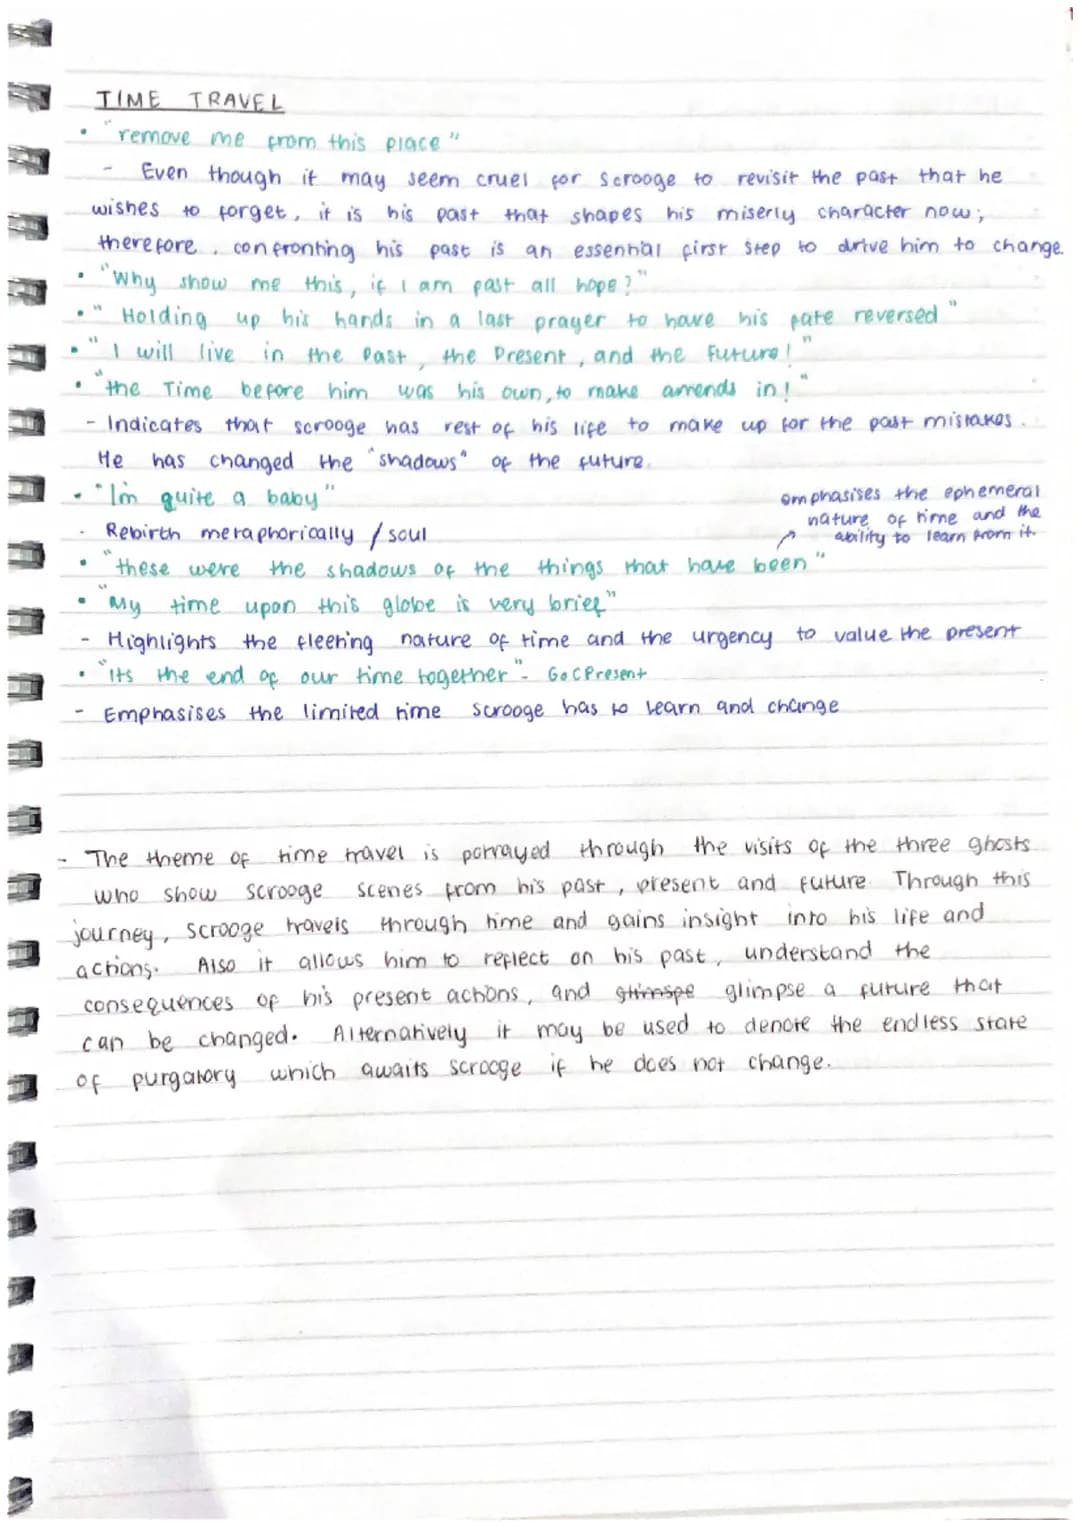 TIME TRAVEL
• "remove me from this place"
- Even though it may seem cruel for scrooge to revisit the past that he
wishes to forget, it is his past that shapes his miserly character now;
therefore, confronting his past is an essential first step to drive him to change.
• "Why show me this, if I am past all hope?"
• "Holding up his hands in a last prayer to have his fate reversed"
• "I will live in the Past, the Present, and the Future!"
• "the Time before him was his own, to make amends in!"
- Indicates that scrooge has rest of his life to make up for the past mistakes.
He has changed the "shadows" of the future.
• "I'm quite a baby"
- Rebirth metaphorically / soul
emphasises the ephemeral
nature of time and the
ability to learn from it.
• "these were the shadows of the things that have been"
• "My time upon this globe is very brief"
- Highlights the fleeting nature of time and the urgency to value the present
• "its the end of our time together" - GoCPresent
- Emphasises the limited time scrooge has to learn and change
- The theme of time travel is portrayed through the visits of the three ghosts
who show scrooge scenes from his past, present and future. Through this
journey, scrooge travels through time and gains insight into his life and
actions. Also it allows him to reflect on his past, understand the
consequences of his present actions, and glimpse a future that
can be changed. Alternatively it may be used to denote the endless state
of purgatory which awaits scrooge if he does not change.